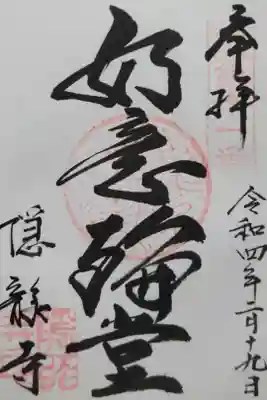 奉拝
令和四年二月十九日
如意輪堂
隠龍寺